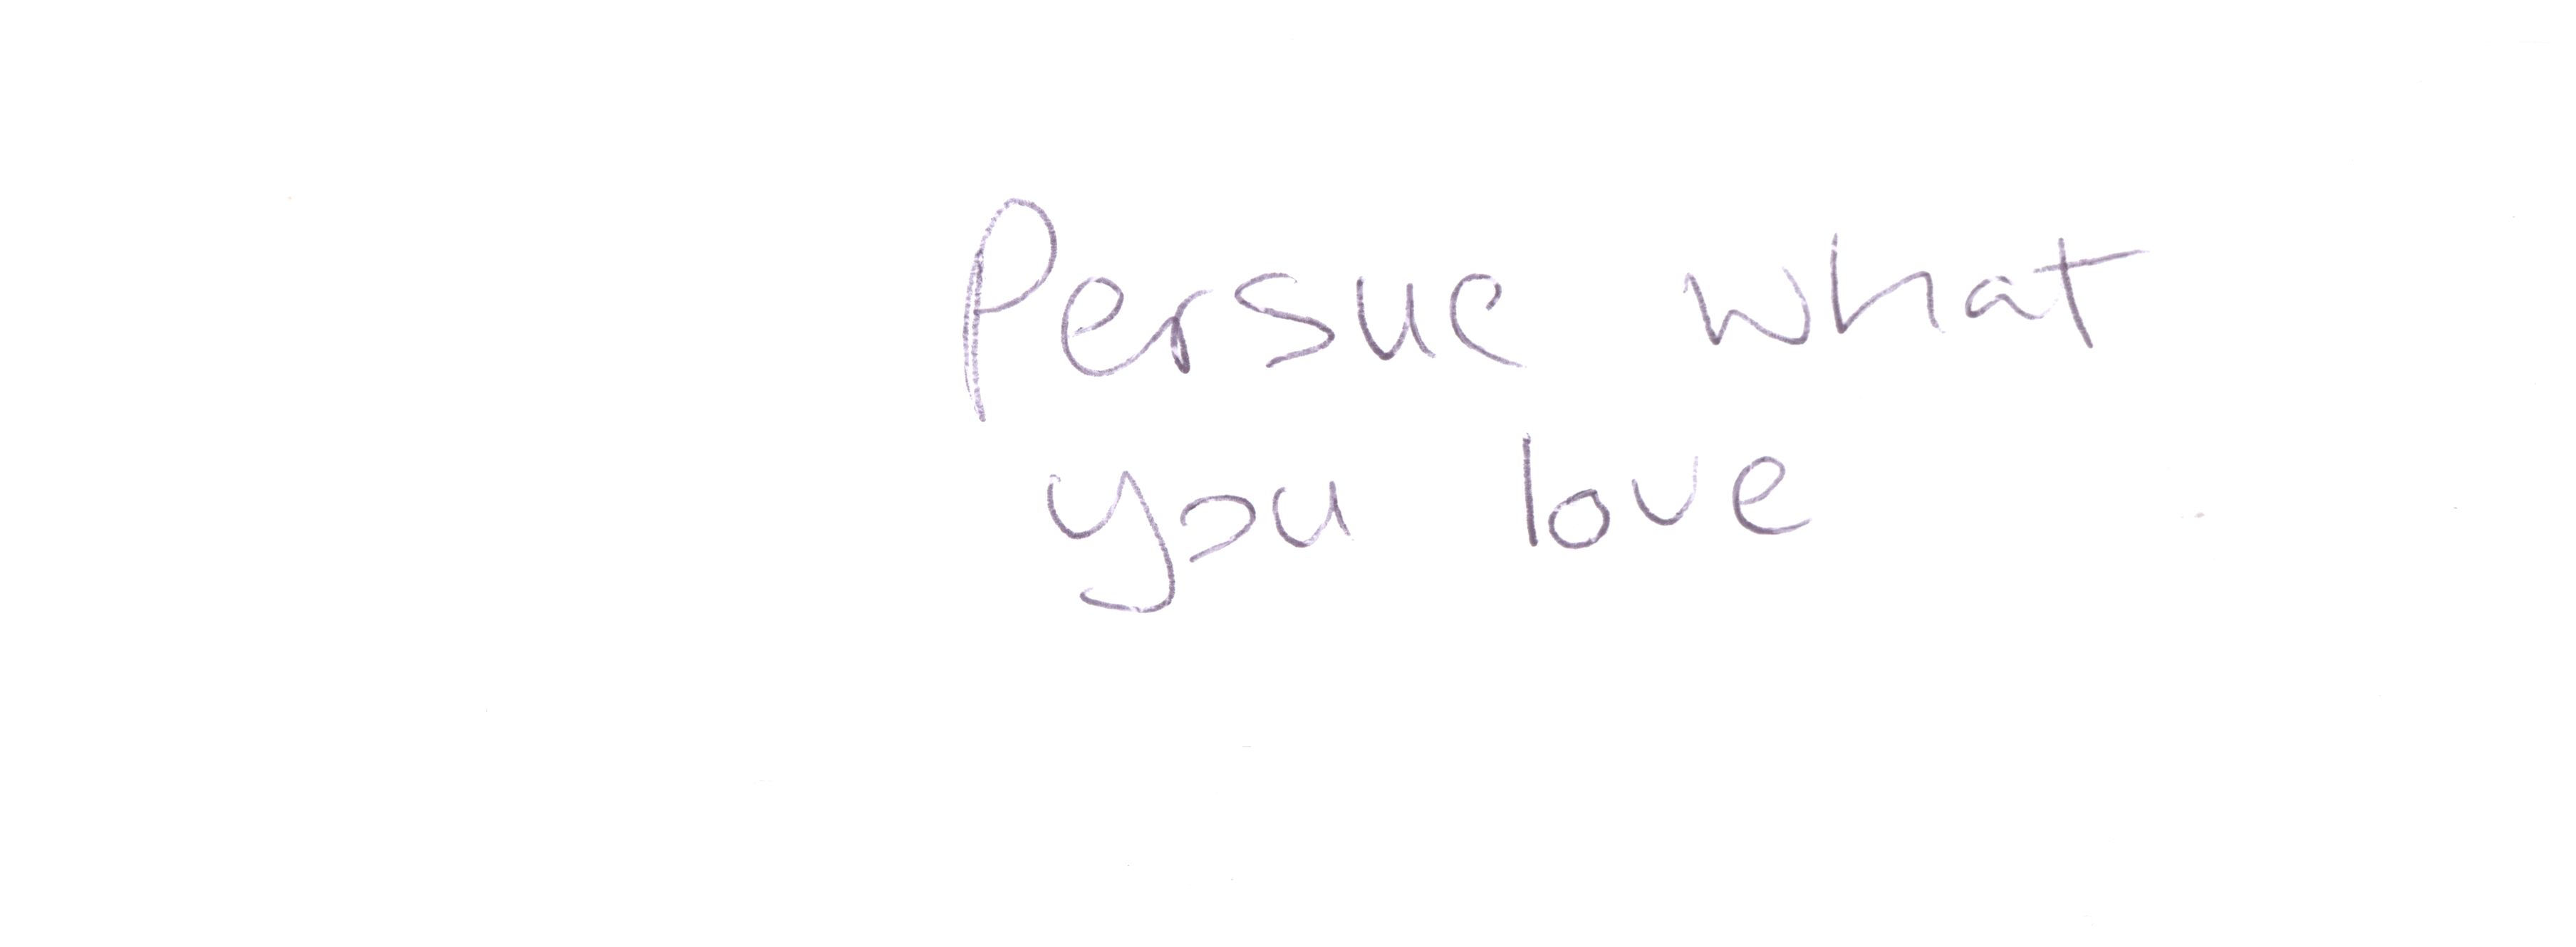 Persue what
you love